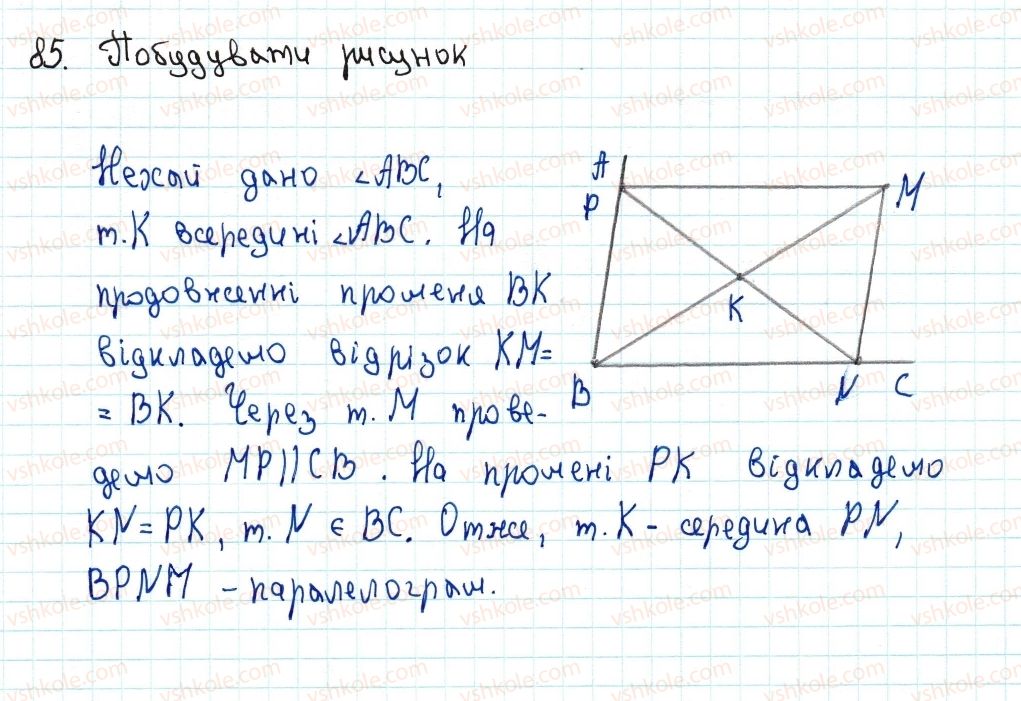 85. Побудувати рисунок
Нехай дано ∠ABC,
т.K всередині ∠ABC. На
продовженні променя BK
відкладемо відрізок KM=
= BK. Через т.M прове-
демо MP||CB. На промені PK відкладемо
KN=PK, т.N є BC. Отже, т.K - середина PN,
BPNM - паралелограм.
A
P
M
K
B
N
C
vshkole.com